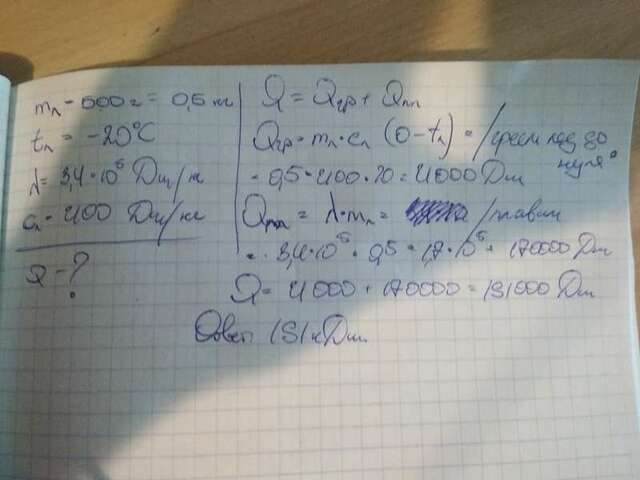 mл - 500 г = 0,5 кг
tл = -20°C
λ = 3,4·10⁵ Дж/кг
cл = 2100 Дж/кг
Q - ?
Q = Qгр + Qпл
Qгр = mл · cл (0 - tл) = /греем лед до нуля°
= 0,5 · 2100 · 20 = 21000 Дж
Qпл = λ · mл = /плавим
= 3,4·10⁵ · 0,5 = 1,7·10⁵ = 170000 Дж
Q = 21000 + 170000 = 191000 Дж
Ответ: 191 кДж.